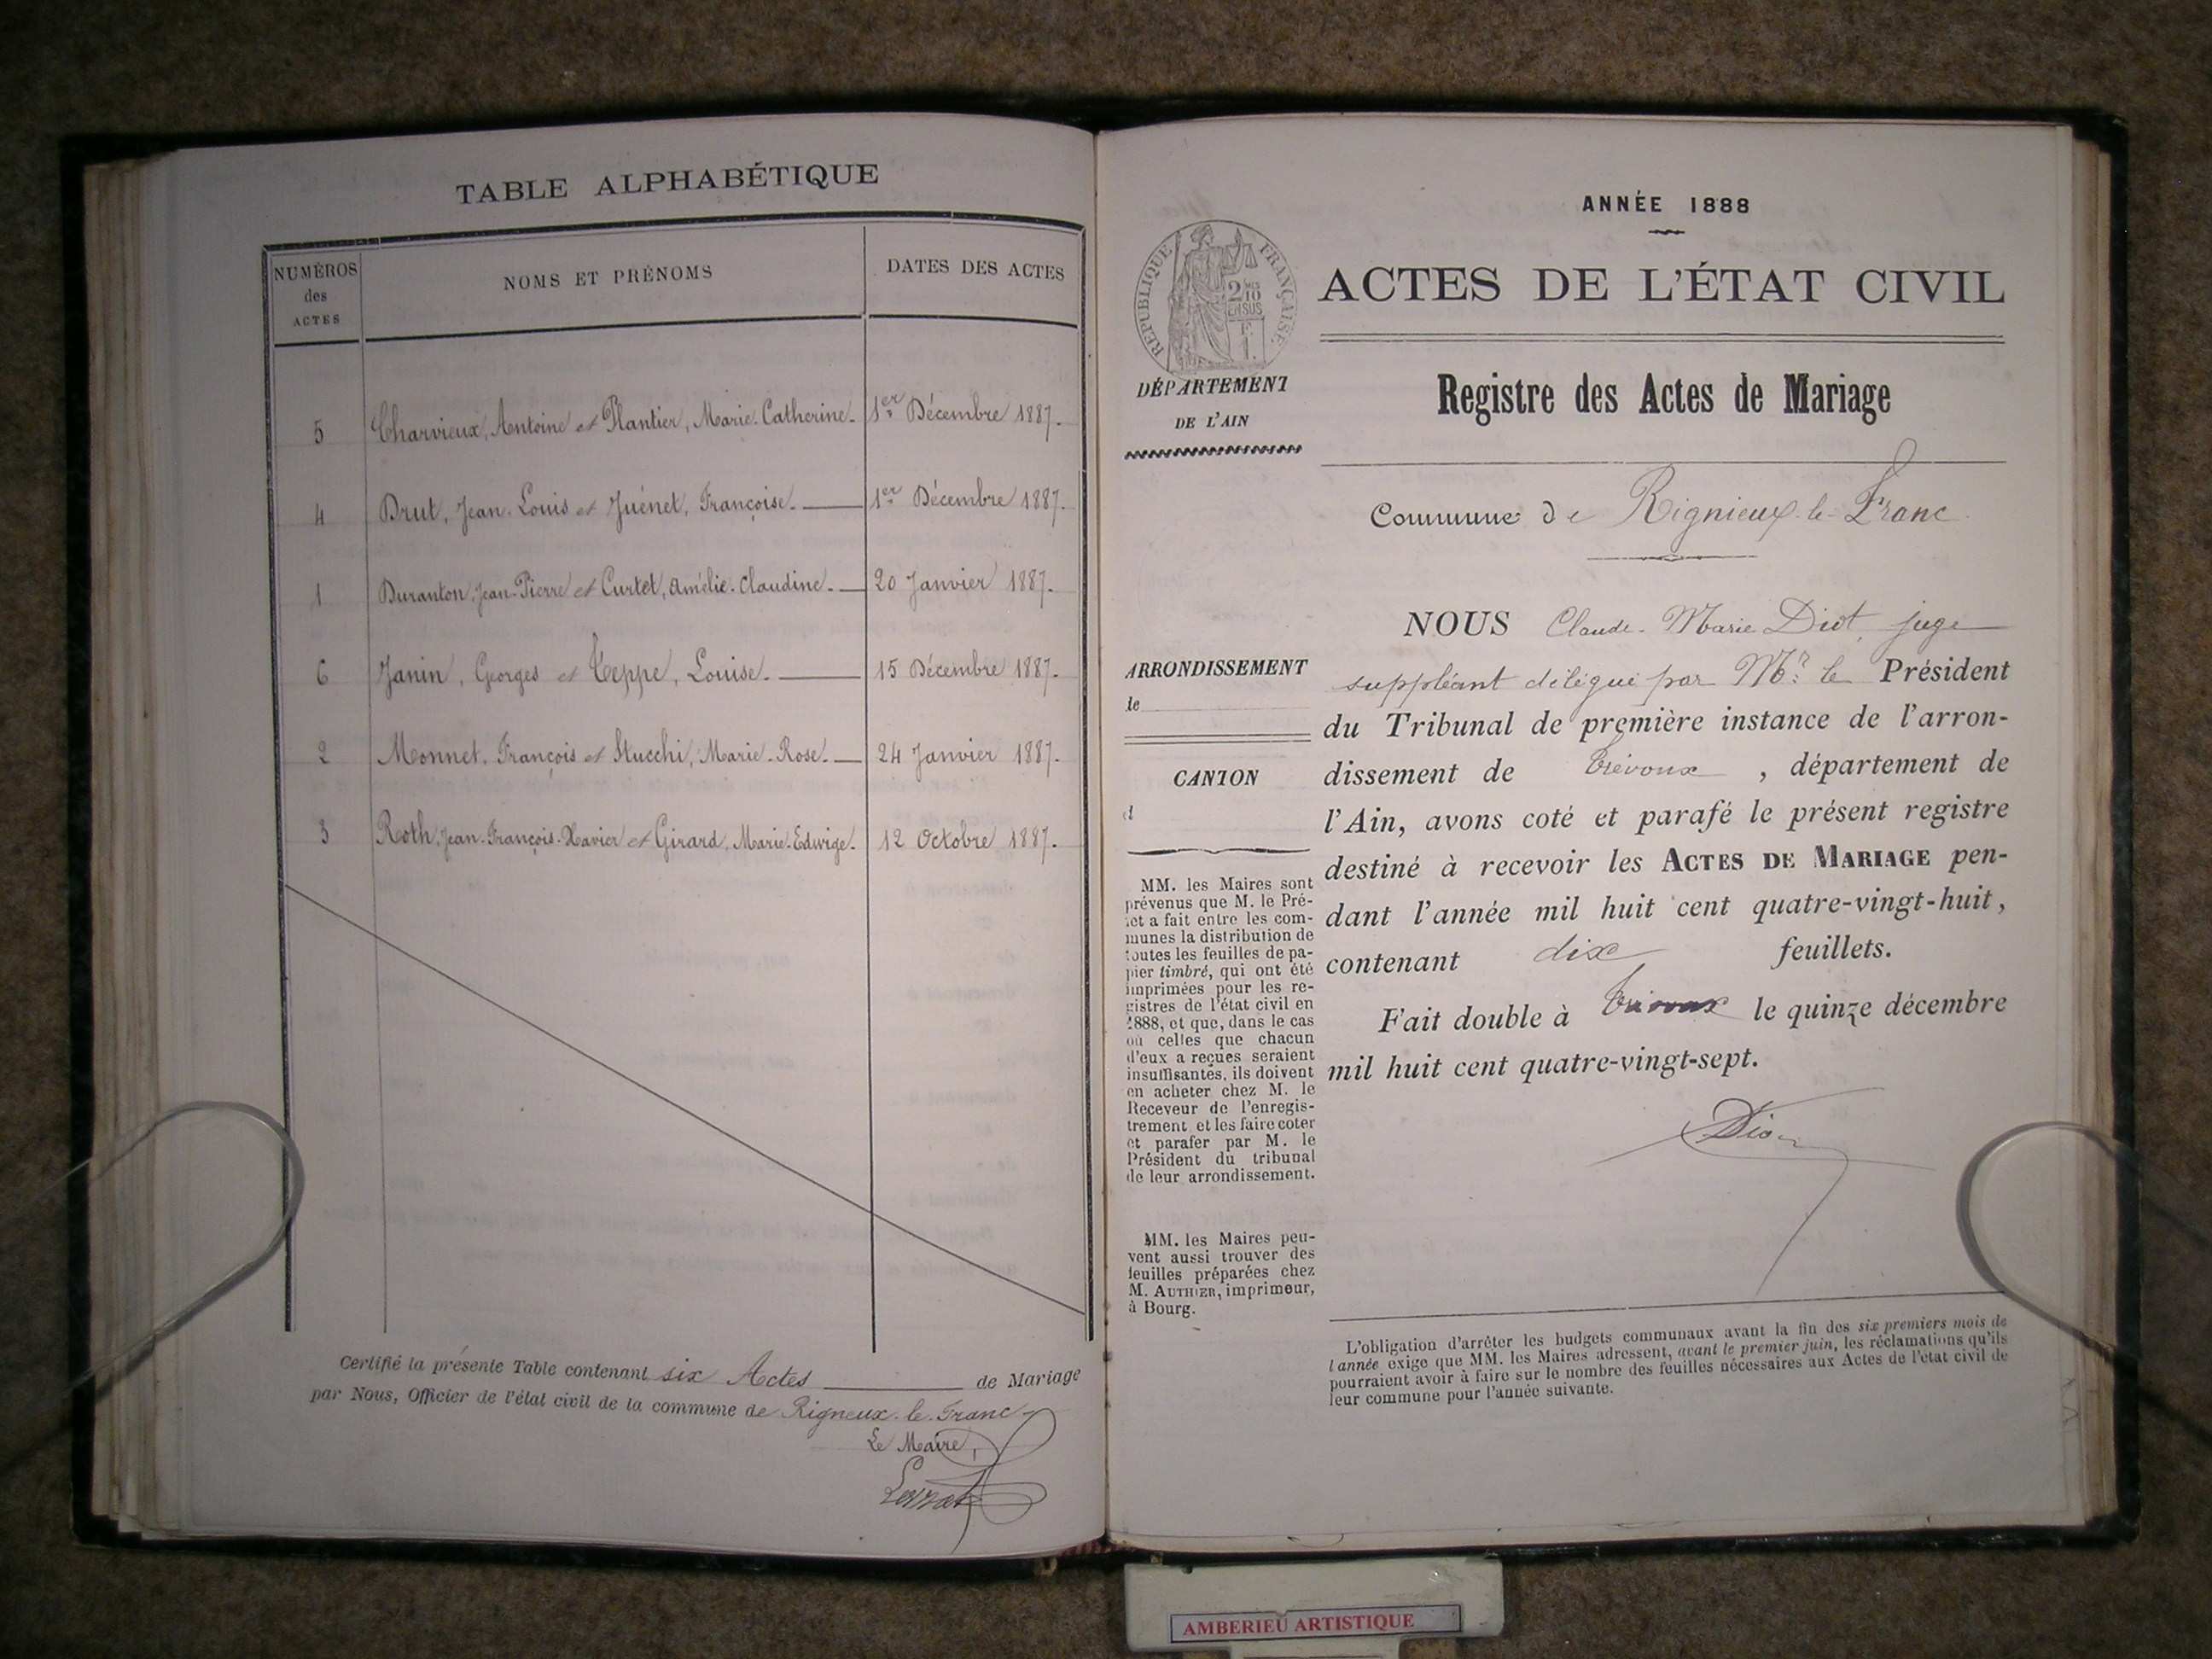 TABLE ALPHABÉTIQUE
NUMÉROS des ACTES
NOMS ET PRÉNOMS
DATES DES ACTES
5 Charvieux, Antoine et Plantier, Marie-Catherine. 1er Décembre 1887.
4 Brut, Jean-Louis et Juénet, Françoise. 1er Décembre 1887.
1 Duranton, Jean-Pierre et Curtet, Amélie-Claudine. 20 Janvier 1887.
6 Janin, Georges et Teppe, Louise. 15 Décembre 1887.
2 Monnet, François et Stucchi, Marie-Rose. 24 Janvier 1887.
3 Roth, Jean-François-Xavier et Girard, Marie-Edwige. 12 Octobre 1887.
Certifié la présente Table contenant six Actes de Mariage
par Nous, Officier de l'état civil de la commune de Rigneux-le-Franc
Le Maire,
ANNÉE 1888
RÉPUBLIQUE FRANÇAISE
2/10 EN SUS
F.
1.
ACTES DE L'ÉTAT CIVIL
DÉPARTEMENT
DE L'AIN
Registre des Actes de Mariage
Commune de Rignieux-le-Franc
NOUS Claude-Marie Diot, juge
suppléant délégué par Mr. le Président
du Tribunal de première instance de l'arron-
dissement de Trévoux, département de
l'Ain, avons coté et parafé le présent registre
destiné à recevoir les ACTES DE MARIAGE pen-
dant l'année mil huit cent quatre-vingt-huit,
contenant dix feuillets.
Fait double à Trévoux le quinze décembre
mil huit cent quatre-vingt-sept.
Diot
ARRONDISSEMENT
de
CANTON
d
MM. les Maires sont
prévenus que M. le Pré-
fet a fait entre les com-
munes la distribution de
toutes les feuilles de pa-
pier timbré, qui ont été
imprimées pour les re-
gistres de l'état civil en
1888, et que, dans le cas
où celles que chacun
d'eux a reçues seraient
insuffisantes, ils doivent
en acheter chez M. le
Receveur de l'enregis-
trement et les faire coter
et parafer par M. le
Président du tribunal
de leur arrondissement.
MM. les Maires peu-
vent aussi trouver des
feuilles préparées chez
M. AUTHIER, imprimeur,
à Bourg.
L'obligation d'arrêter les budgets communaux avant la fin des six premiers mois de
l'année exige que MM. les Maires adressent, avant le premier juin, les réclamations qu'ils
pourraient avoir à faire sur le nombre des feuilles nécessaires aux Actes de l'état civil de
leur commune pour l'année suivante.
AMBERIEU ARTISTIQUE